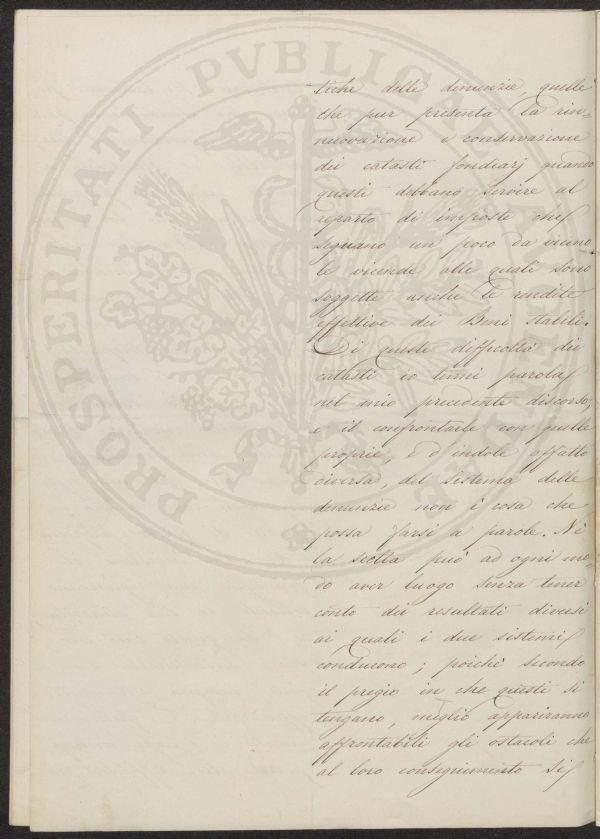 PROSPERITATI PVBLICAE
tiche delle denunzie, quelle
che pur presenta la rin-
nuovazione e conservazione
dei catasti fondiarj quando
questi debbano servire al
reparto di imposte che
seguano un poco da vicino
le vicende alle quali sono
soggette anche le rendite
effettive dei Beni stabili.
Di queste difficoltà dei
catasti io tenni parola
nel mio precedente discorso;
e il confrontarle con quelle
proprie, e d'indole affatto
diversa, del sistema delle
denunzie non è cosa che
possa farsi a parole. Nè
la scelta può ad ogni mo-
do aver luogo senza tener
conto dei resultati diversi
ai quali i due sistemi
conducono; poichè secondo
il pregio in che questi si
tengano, meglio appariranno
affrontabili gli ostacoli che
al loro conseguimento si